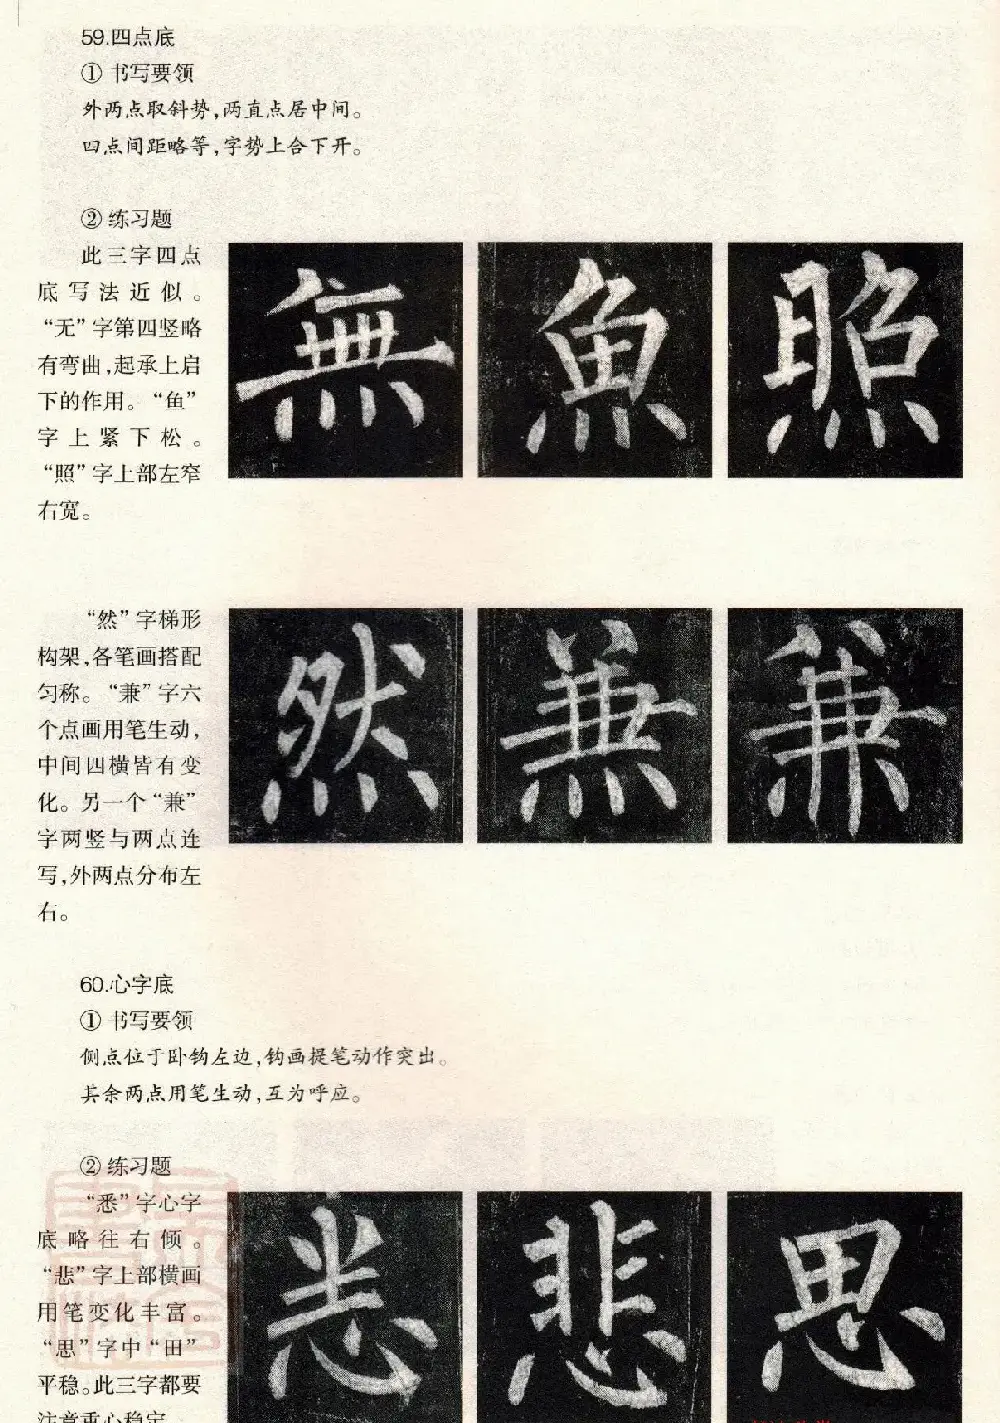 59.四点底
① 书写要领
外两点取斜势,两直点居中间。
四点间距略等,字势上合下开。
② 练习题
此三字四点
底写法近似。
“无”字第四竖略
有弯曲,起承上启
下的作用。“鱼”
字上紧下松。
“照”字上部左窄
右宽。
無 魚 照
“然”字梯形
构架,各笔画搭配
匀称。“兼”字六
个点画用笔生动,
中间四横皆有变
化。另一个“兼”
字两竖与两点连
写,外两点分布左
右。
然 兼 兼
60.心字底
① 书写要领
侧点位于卧钩左边,钩画提笔动作突出。
其余两点用笔生动,互为呼应。
② 练习题
“悉”字心字
底略往右倾。
“悲”字上部横画
用笔变化丰富。
“思”字中“田”
平稳。此三字都要
注意重心稳定
悉 悲 思